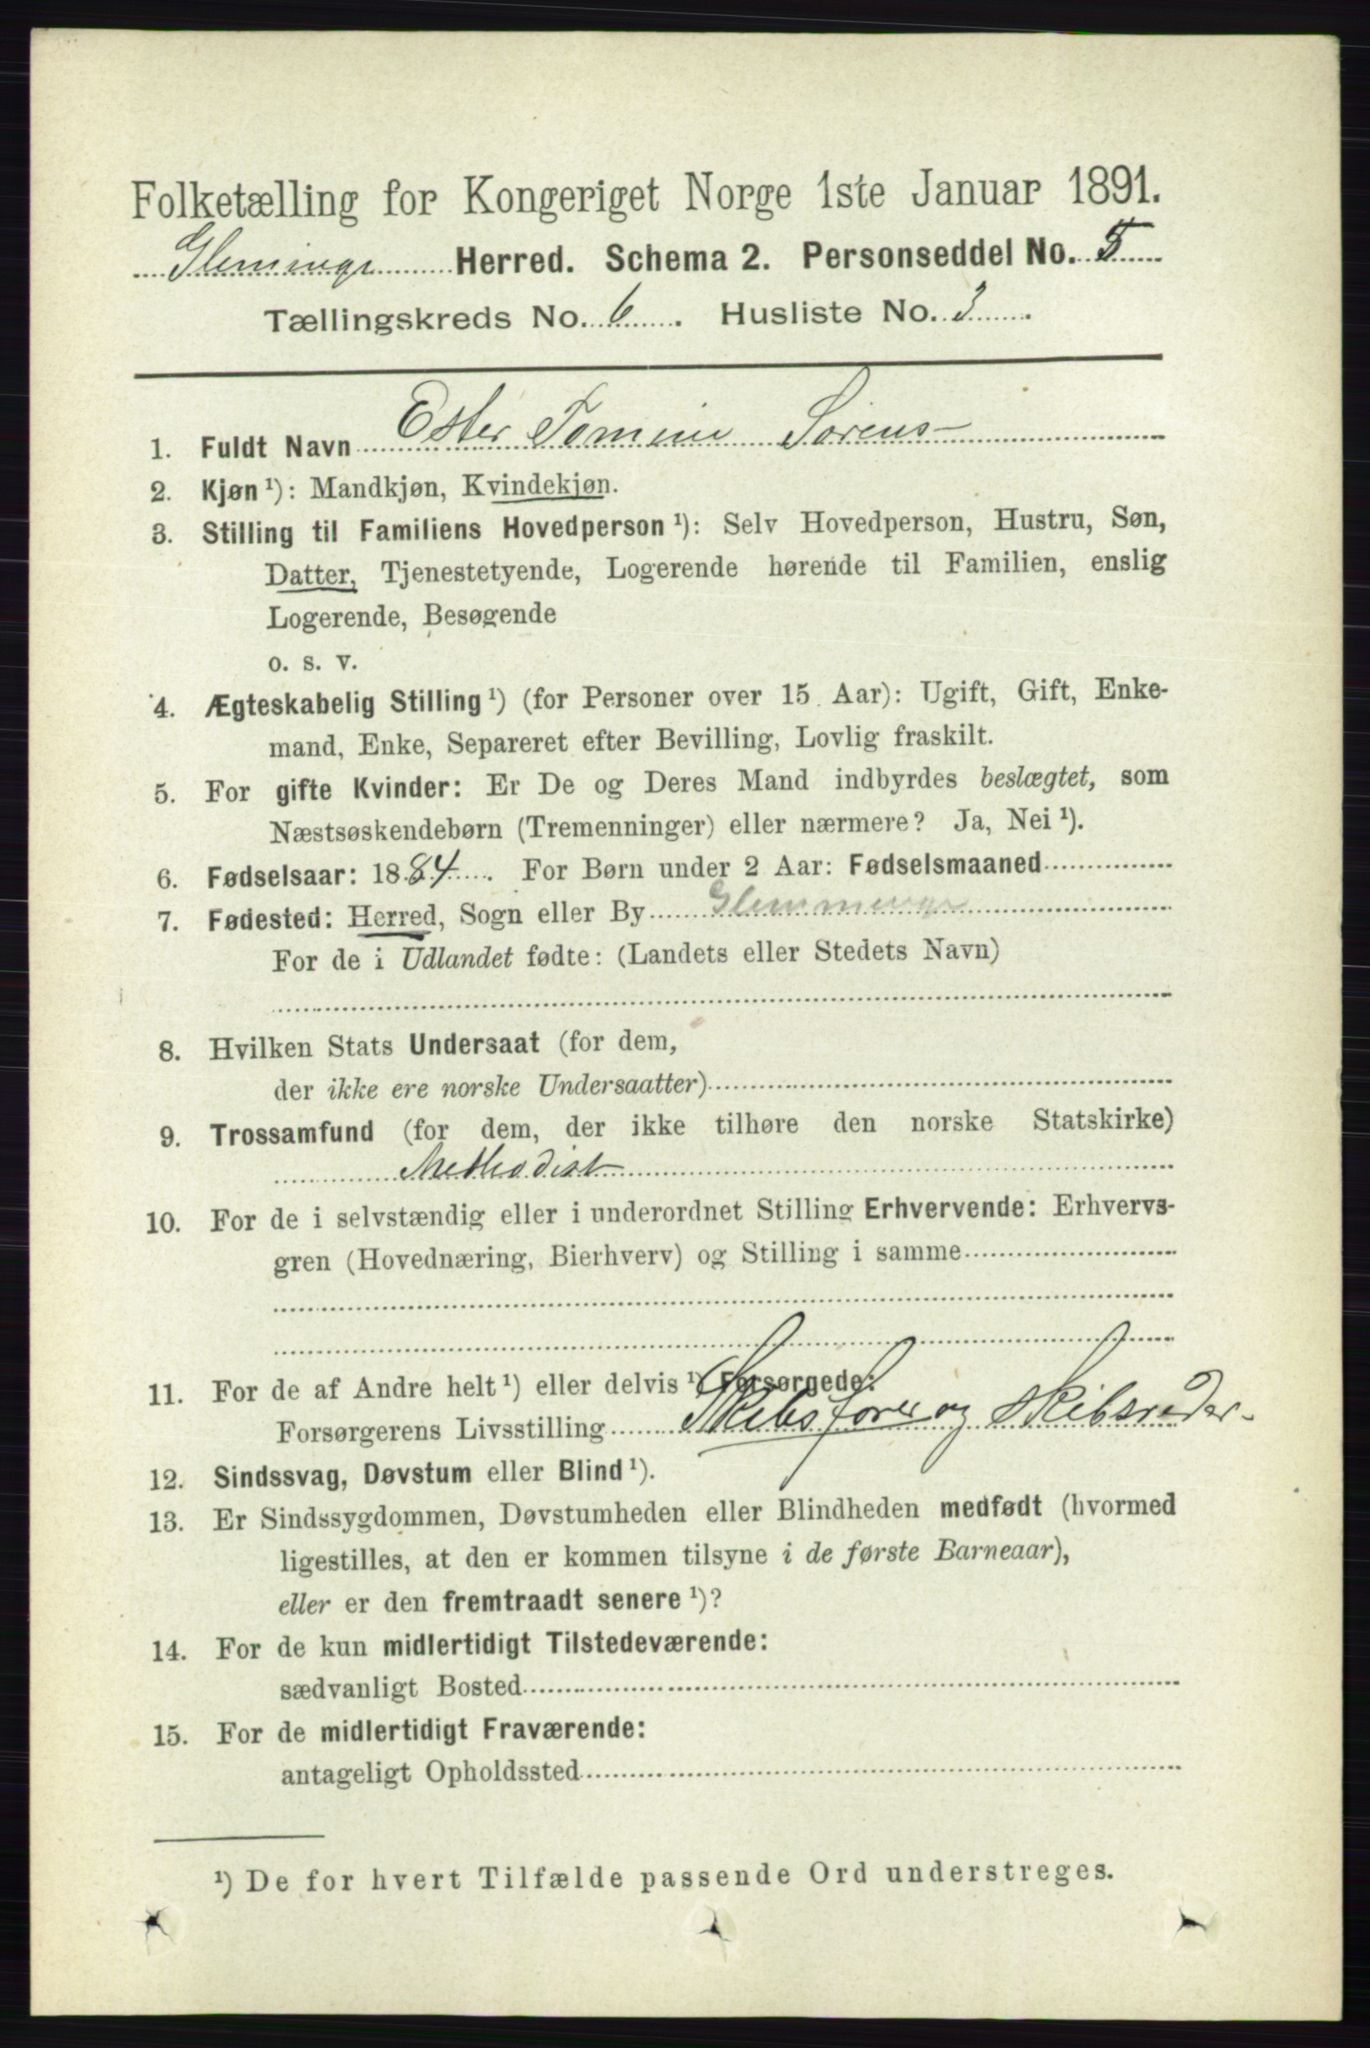 Folketælling for Kongeriget Norge 1ste Januar 1891.
Glemminge Herred. Schema 2. Personseddel No. 5
Tællingskreds No. 6. Husliste No. 3.
1. Fuldt Navn Ester Tomine Sørens
2. Kjøn ¹): Mandkjøn, Kvindekjøn.
3. Stilling til Familiens Hovedperson ¹): Selv Hovedperson, Hustru, Søn,
Datter, Tjenestetyende, Logerende hørende til Familien, enslig
Logerende, Besøgende
o. s. v.
4. Ægteskabelig Stilling ¹) (for Personer over 15 Aar): Ugift, Gift, Enke-
mand, Enke, Separeret efter Bevilling, Lovlig fraskilt.
5. For gifte Kvinder: Er De og Deres Mand indbyrdes beslægtet, som
Næstsøskendebørn (Tremenninger) eller nærmere? Ja, Nei ¹).
6. Fødselsaar: 1884. For Børn under 2 Aar: Fødselsmaaned
7. Fødested: Herred, Sogn eller By Glemminge
For de i Udlandet fødte: (Landets eller Stedets Navn)
8. Hvilken Stats Undersaat (for dem,
der ikke ere norske Undersaatter)
9. Trossamfund (for dem, der ikke tilhøre den norske Statskirke)
Methodist
10. For de i selvstændig eller i underordnet Stilling Erhvervende: Erhvervs-
gren (Hovednæring, Bierhverv) og Stilling i samme
11. For de af Andre helt ¹) eller delvis ¹) Forsørgede:
Forsørgerens Livsstilling Skibsfører og Skibsreder.
12. Sindssvag, Døvstum eller Blind ¹).
13. Er Sindssygdommen, Døvstumheden eller Blindheden medfødt (hvormed
ligestilles, at den er kommen tilsyne i de første Barneaar),
eller er den fremtraadt senere ¹)?
14. For de kun midlertidigt Tilstedeværende:
sædvanligt Bosted
15. For de midlertidigt Fraværende:
antageligt Opholdssted
¹) De for hvert Tilfælde passende Ord understreges.